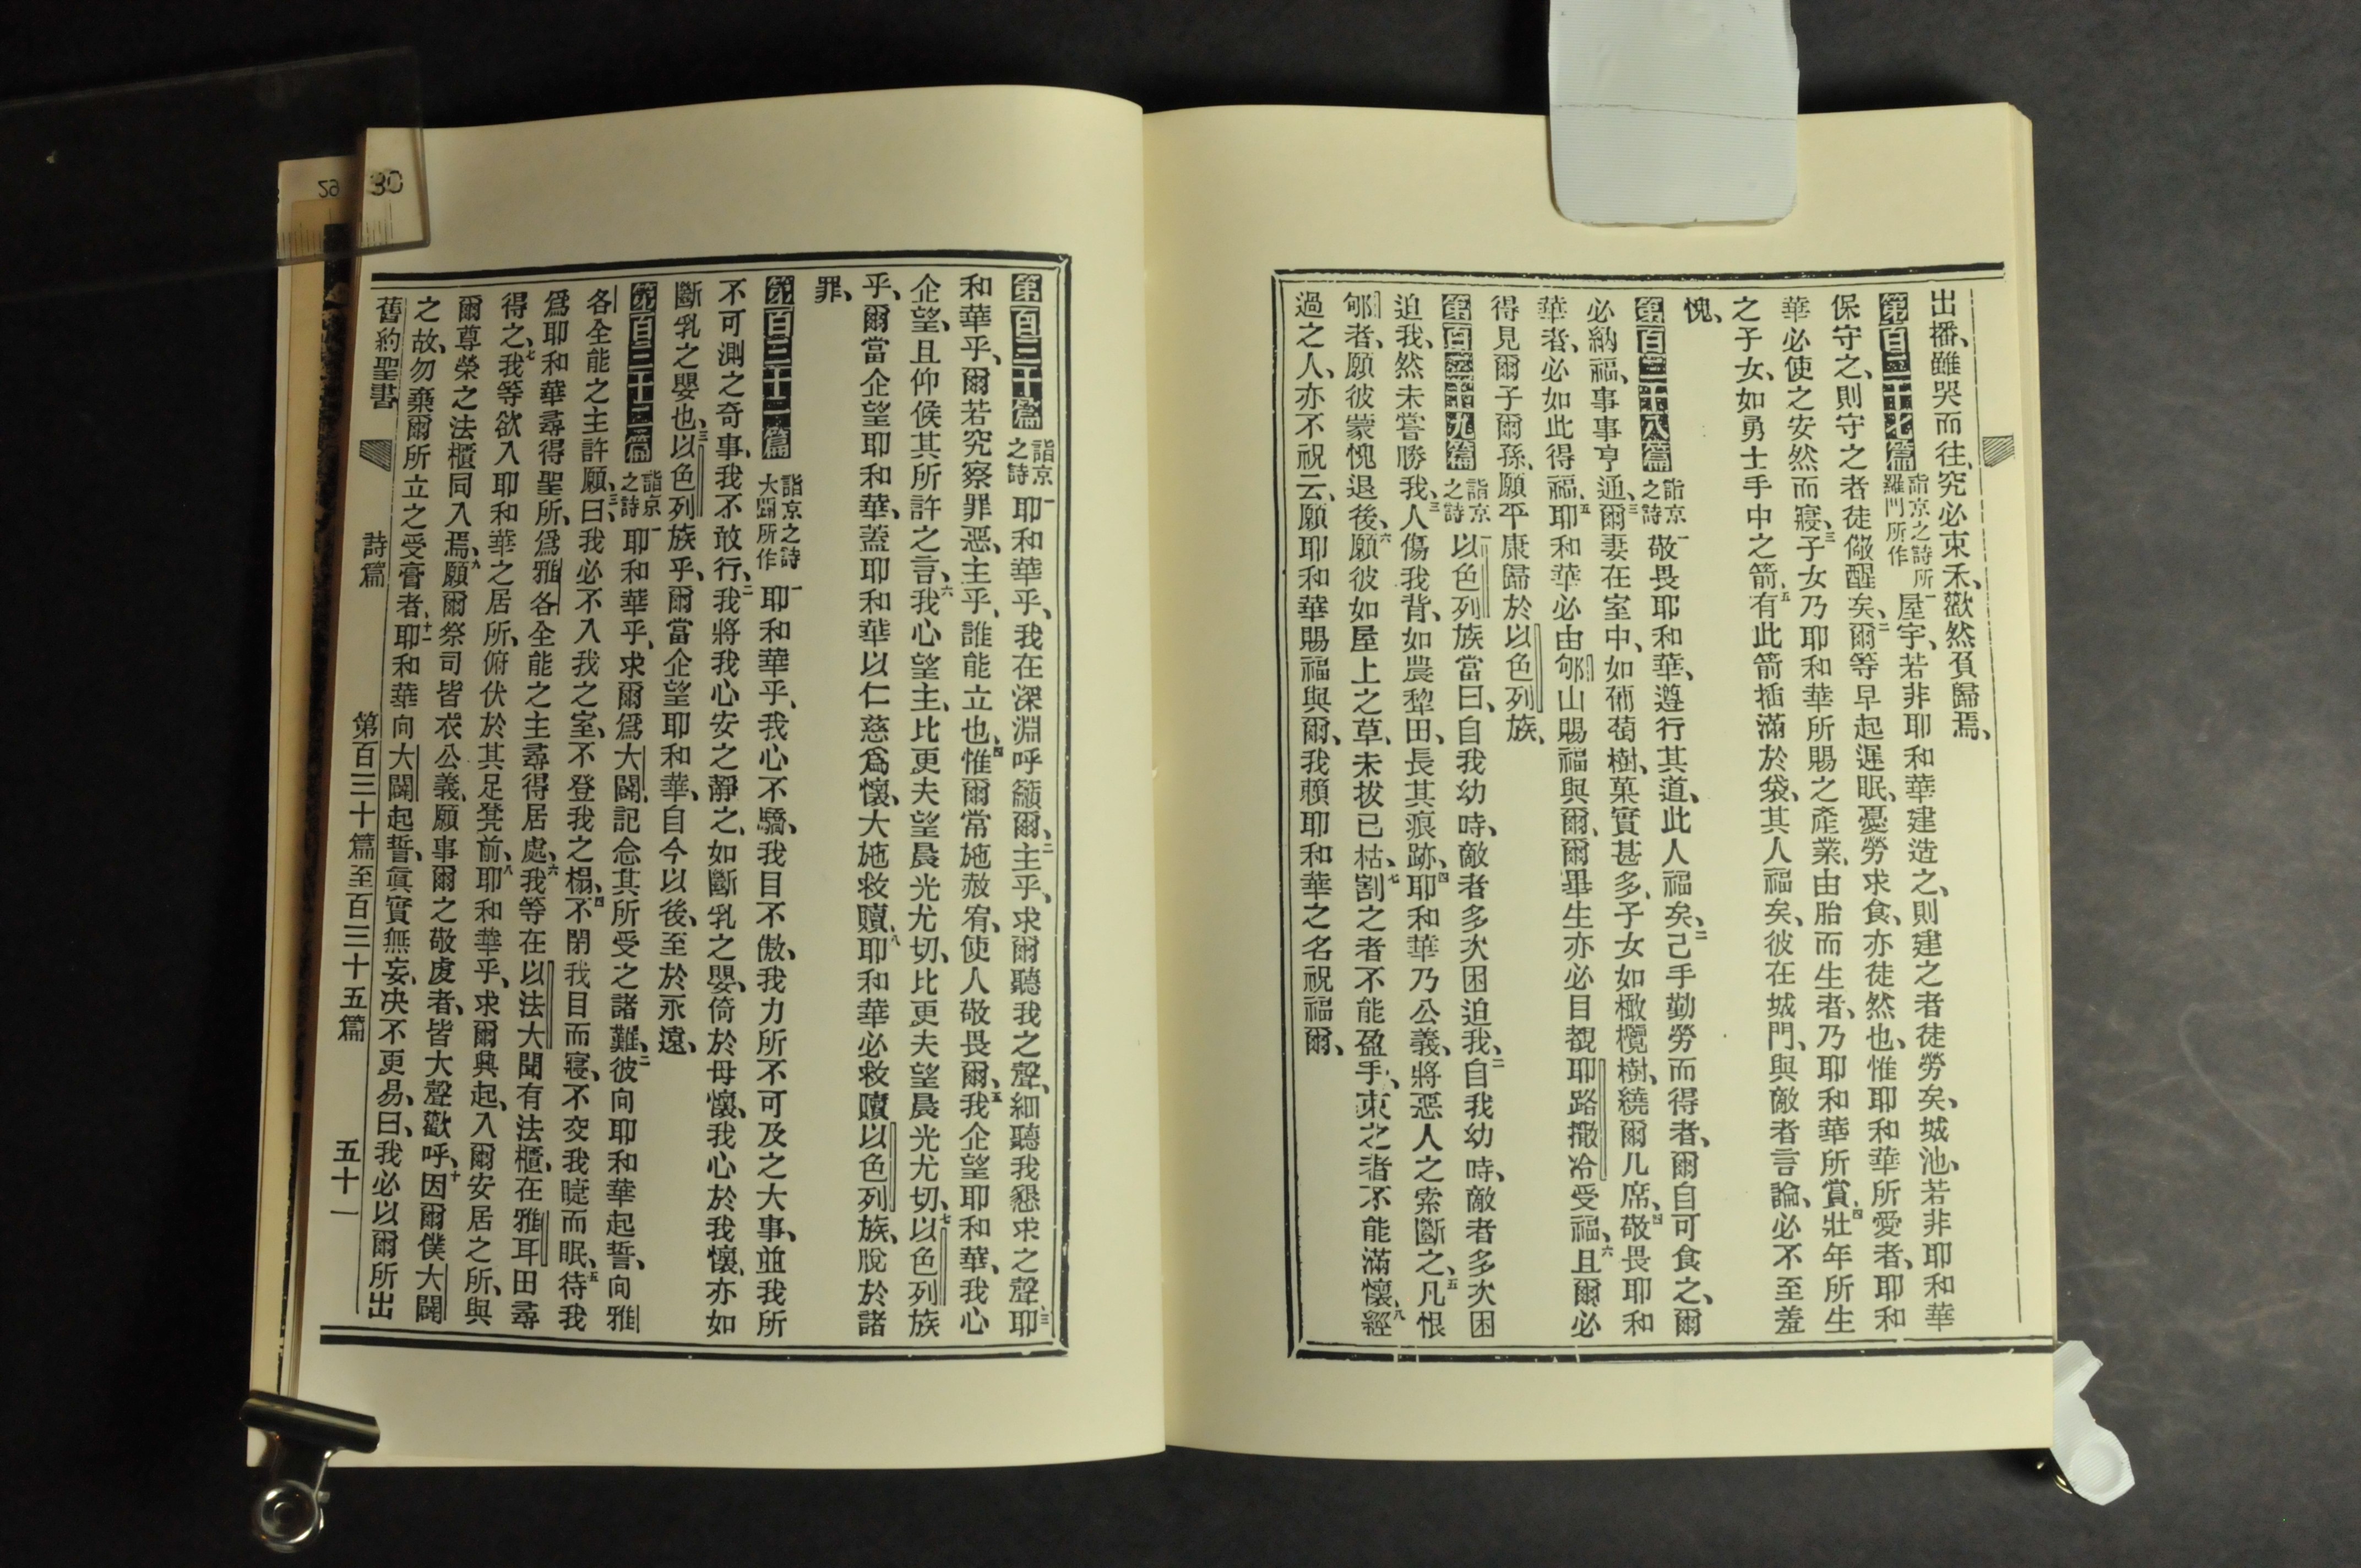 出播、雖哭而往、究必束禾、歡然負歸焉、
第百二十七篇 詣京之詩所羅門所作 一屋宇、若非耶和華建造之、則建之者徒勞矣、城池、若非耶和華
保守之、則守之者徒儆醒矣、二爾等早起遲眠、憂勞求食、亦徒然也、惟耶和華所愛者、耶和
華必使之安然而寢、三子女乃耶和華所賜之產業、由胎而生者、乃耶和華所賞、四壯年所生
之子女、如勇士手中之箭、五有此箭插滿於袋、其人福矣、彼在城門、與敵者言論、必不至羞
愧、
第百二十八篇 詣京之詩 一敬畏耶和華、遵行其道、此人福矣、二己手勤勞而得者、爾自可食之、爾
必納福、事事亨通、三爾妻在室中、如葡萄樹、菓實甚多、子女如橄欖樹、繞爾几席、四敬畏耶和
華者、必如此得福、五耶和華必由郇山賜福與爾、爾畢生亦必目覩耶路撒冷受福、六且爾必
得見爾子爾孫、願平康歸於以色列族、
第百二十九篇 詣京之詩 一以色列族當曰、自我幼時、敵者多次困迫我、二自我幼時、敵者多次困
迫我、然未嘗勝我、三人傷我背、如農犂田、長其痕跡、四耶和華乃公義、將惡人之索斷之、五凡恨
郇者、願彼蒙愧退後、六願彼如屋上之草、未拔已枯、七割之者不能盈手、束之者不能滿懷、八經
過之人、亦不祝云、願耶和華賜福與爾、我賴耶和華之名祝福爾、
第百三十篇 詣京之詩 一耶和華乎、我在深淵呼籲爾、二主乎、求爾聽我之聲、細聽我懇求之聲、三耶
和華乎、爾若究察罪惡、主乎、誰能立也、四惟爾常施赦宥、使人敬畏爾、五我企望耶和華、我心
企望、且仰候其所許之言、六我心望主、比更夫望晨光尤切、比更夫望晨光尤切、七以色列族
乎、爾當企望耶和華、蓋耶和華以仁慈爲懷、大施救贖、八耶和華必救贖以色列族、脫於諸
罪、
第百三十一篇 詣京之詩大闢所作 一耶和華乎、我心不驕、我目不傲、我力所不可及之大事、並我所
不可測之奇事、我不敢行、二我將我心安之靜之、如斷乳之嬰、倚於母懷、我心於我懷、亦如
斷乳之嬰也、三以色列族乎、爾當企望耶和華、自今以後、至於永遠、
第百三十二篇 詣京之詩 一耶和華乎、求爾爲大闢、記念其所受之諸難、二彼向耶和華起誓、向雅
各全能之主許願、三曰、我必不入我之室、不登我之榻、四不閉我目而寢、不交我睫而眠、五待我
爲耶和華尋得聖所、爲雅各全能之主尋得居處、六我等在以法大聞有法櫃、在雅耳田尋
得之、七我等欲入耶和華之居所、俯伏於其足凳前、八耶和華乎、求爾興起、入爾安居之所、與
爾尊榮之法櫃同入焉、九願爾祭司皆衣公義、願事爾之敬虔者、皆大聲歡呼、十因爾僕大闢
之故、勿棄爾所立之受膏者、十一耶和華向大闢起誓、眞實無妄、决不更易、曰、我必以爾所出
舊約聖書 詩篇 第百三十篇至百三十五篇 五十一
29
30